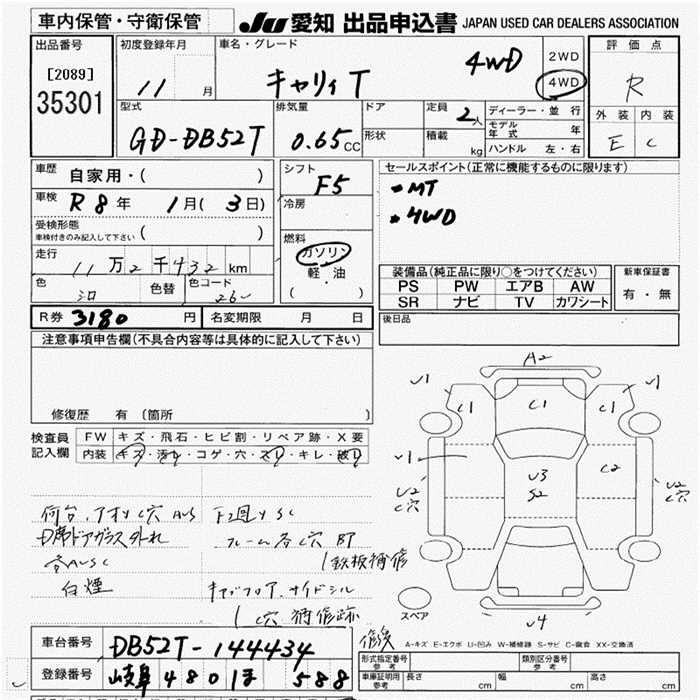 車内保管・守衛保管 JU 愛知 出品申込書 JAPAN USED CAR DEALERS ASSOCIATION
出品番号 [2089] 35301
初度登録年月 11 月
車名・グレード キャリィT 4WD
2WD
4WD
評価点 R
外装 内装
E C
型式 GD-DB52T
排気量 0.65 CC
ドア
形状
定員 2人
積載 kg
ディーラー・並行
モデル年式 年
ハンドル 左・右
車歴 自家用・( )
車検 R8年 1月(3日)
受検形態 車検付きのみ記入して下さい ( )
走行 11万2千432km
色 色替 色コード 26U
シフト F5
冷房
燃料 ガソリン
軽・油
( )
セールスポイント(正常に機能するものに限ります)
・MT
・4WD
装備品(純正品に限り○をつけてください)
PS PW エアB AW
SR ナビ TV カワシート
新車保証書
有・無
R券 3180 円 名変期限 月 日
後日品
注意事項申告欄(不具合内容等は具体的に記入して下さい)
修復歴 有 [箇所 ]
検査員記入欄
FW キズ・飛石・ヒビ割・リペア跡・X要
内装 キズ・汚れ・コゲ・穴・スレ・キレ・破れ
荷台、アオリC穴 AUS F2廻りSC
D席ドアガラス外れ フレーム各C穴 BT
鉄板補修
白煙 キャブフロア、サイドシル
C穴 補修跡
A2
V1 V1
C1 C1 C1
V1 U3 S2 C2
U2 C穴 U2 C穴
U4
スペア
A-キズ E-エクボ U-凹み W-補修跡 S-サビ C-腐食 XX-交換済
車台番号 DB52T-144434
登録番号 岐阜 480 ほ 588
形式指定番号 参考
類別区分番号 参考
車庫証明用 参考 長さ cm 幅 cm 高さ cm